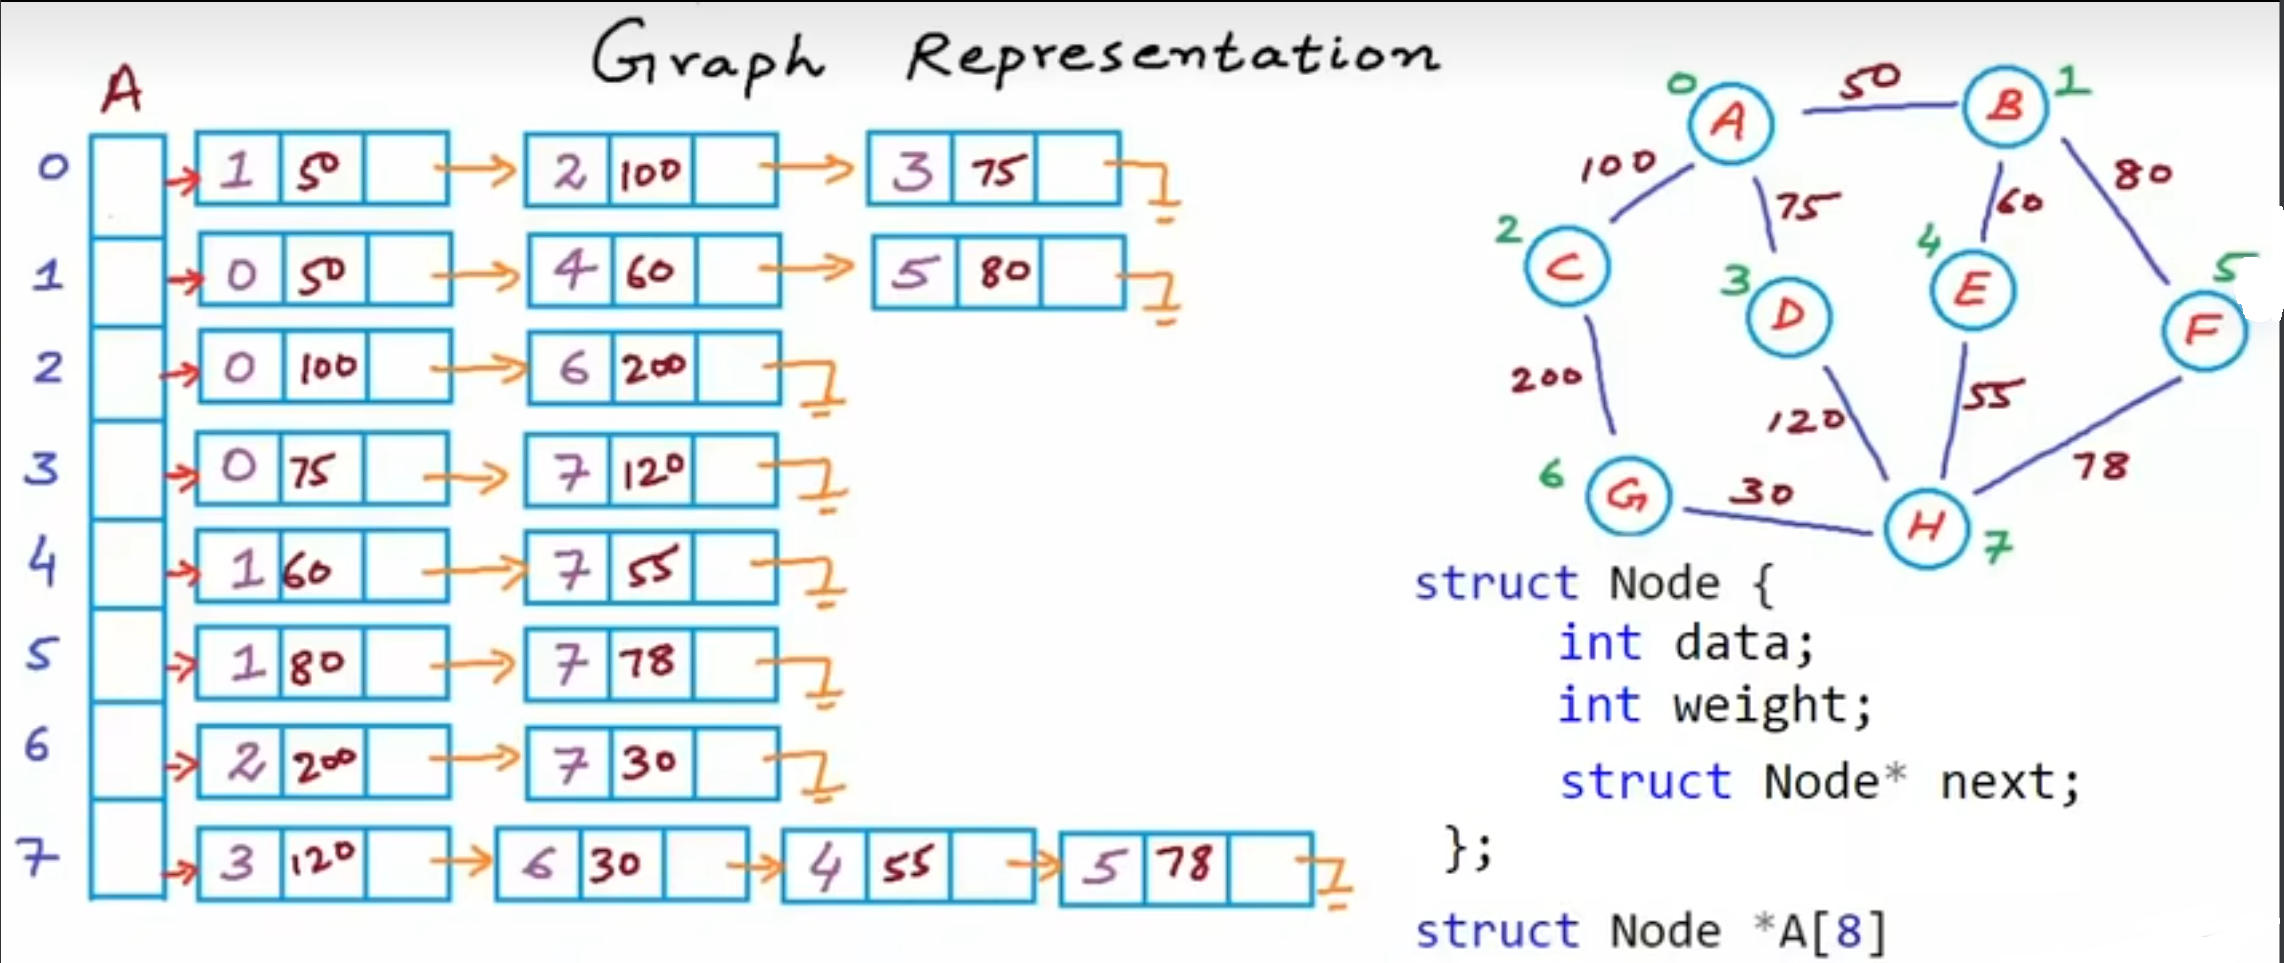 Graph Representation
A
0 1 50 2 100 3 75
1 0 50 4 60 5 80
2 0 100 6 200
3 0 75 7 120
4 1 60 7 55
5 1 80 7 78
6 2 200 7 30
7 3 120 6 30 4 55 5 78
0 A 50 B 1
100 75 60 80
2 C 3 D 4 E 5 F
200 120 55 78
6 G 30 H 7
struct Node {
int data;
int weight;
struct Node* next;
};
struct Node *A[8]